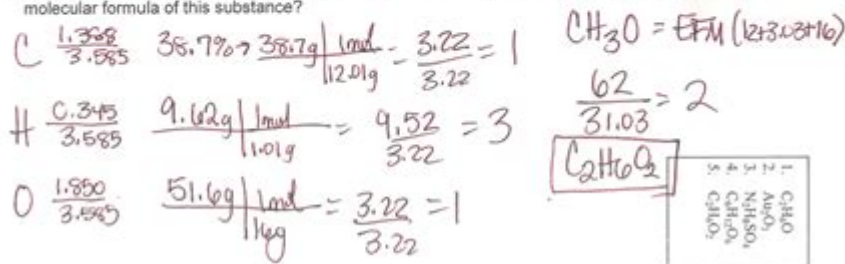 molecular formula of this substance?
C 1.388/3.585 38.7% → 38.7g | 1mol/12.01g = 3.22/3.22 = 1
H 0.345/3.585 9.62g | 1mol/1.01g = 9.52/3.22 = 3
O 1.850/3.585 51.6g | 1mol/16g = 3.22/3.22 = 1
CH3O = EFM (12+3.03+16)
62/31.03 = 2
C2H6O2
1. C2H6O
2. Au2O3
3. N2H8SO4
4. C6H12O6
5. C2H6O2